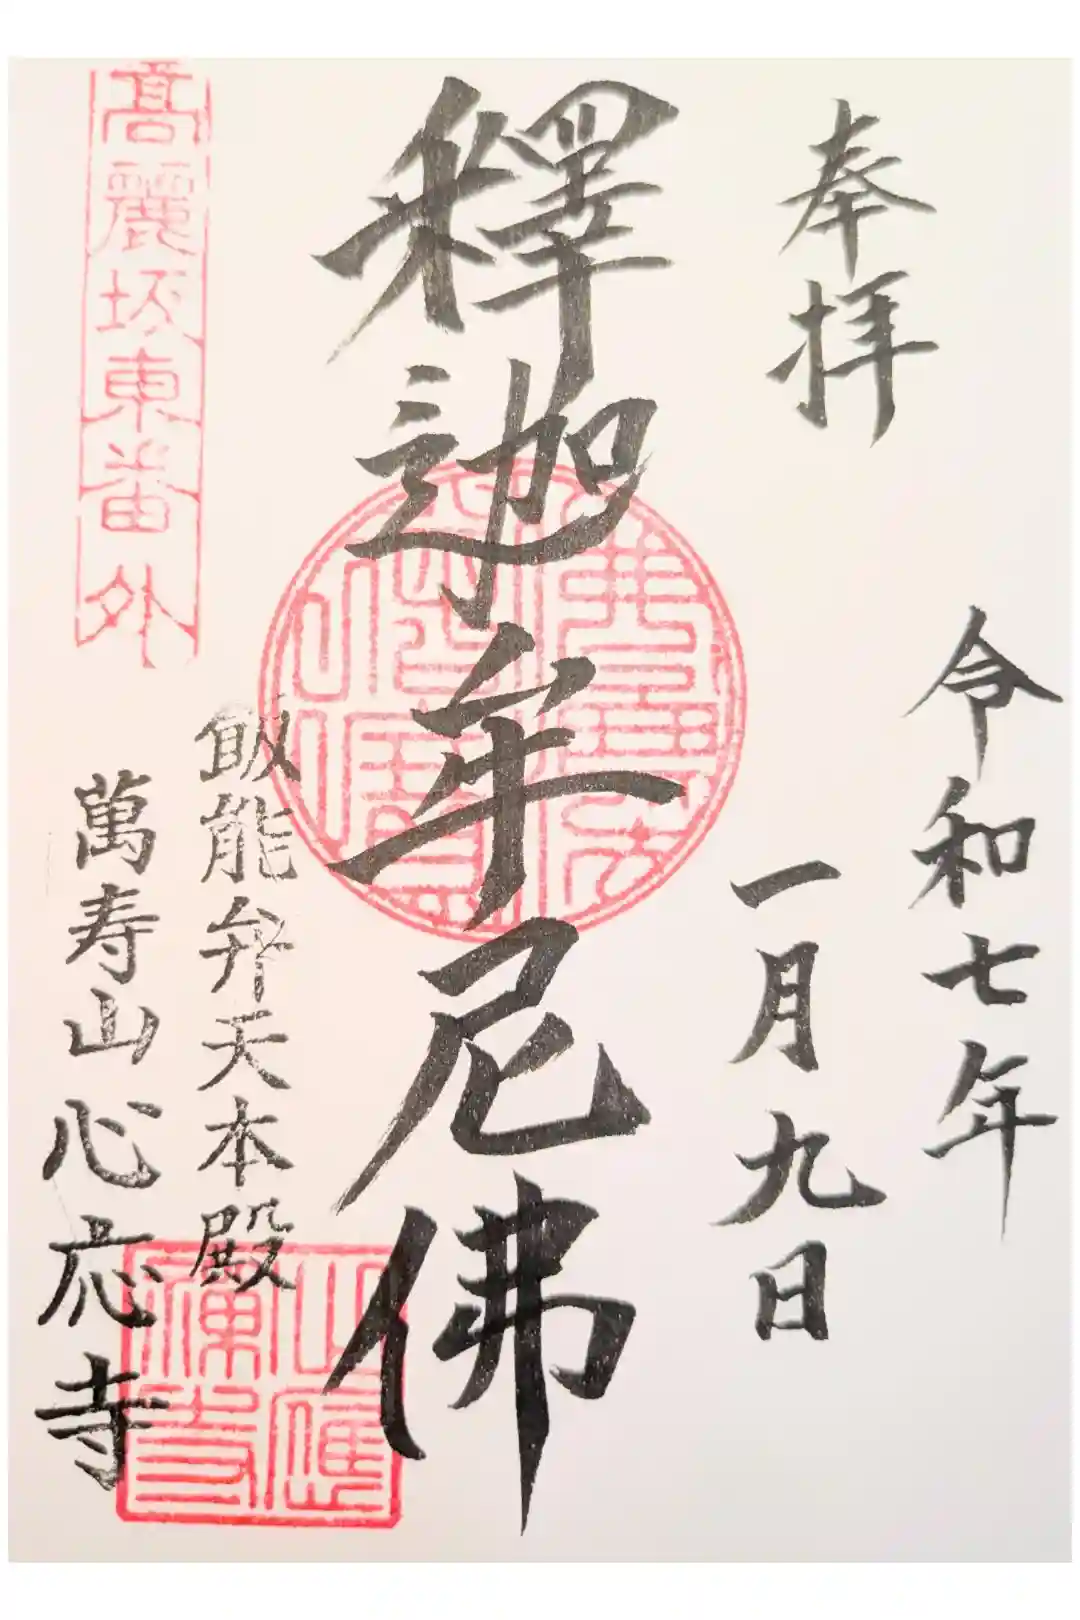 奉拝
令和七年
一月九日
釋迦牟尼佛
高麗坂東番外
飯能弁天本殿
萬寿山心応寺